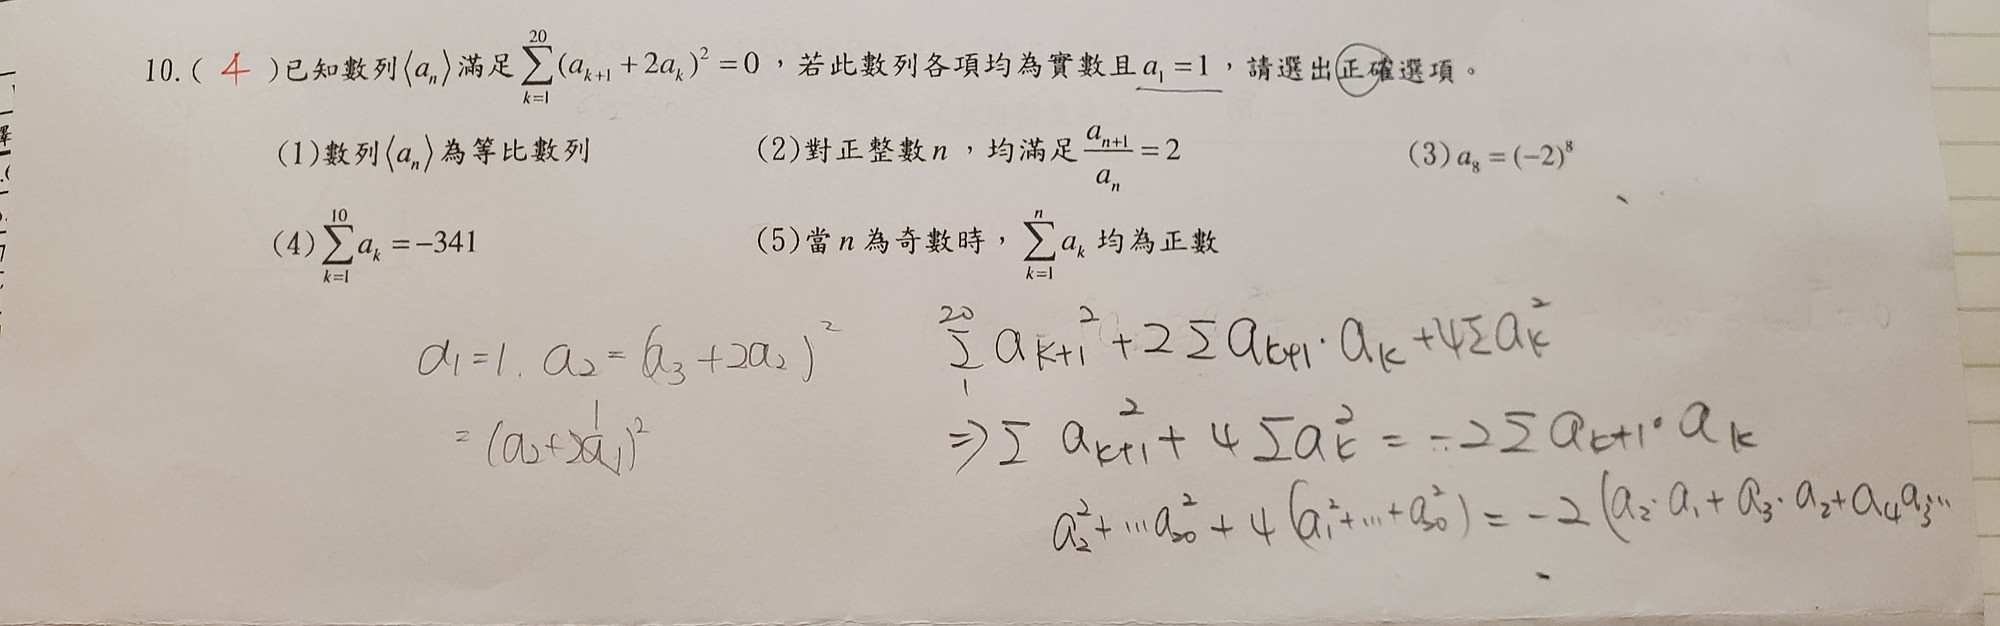 10.( 4 )已知數列⟨aₙ⟩滿足 \sum_{k=1}^{20}(a_{k+1}+2a_k)^2=0，若此數列各項均為實數且a_1=1，請選出正確選項。
(1)數列⟨aₙ⟩為等比數列 (2)對正整數n，均滿足\frac{a_{n+1}}{a_n}=2 (3)a_8=(-2)^8
(4)\sum_{k=1}^{10}a_k=-341 (5)當n為奇數時，\sum_{k=1}^{n}a_k均為正數
a_1=1. a_2=(a_3+2a_2)^2
=(a_2+2a_1)^2
\sum_{1}^{20}a_{k+1}^2+2\sum a_{k+1}·a_k+4\sum a_k^2
⇒\sum a_{k+1}^2+4\sum a_k^2=-2\sum a_{k+1}·a_k
a_2^2+…a_{20}^2+4(a_1^2+…+a_{20}^2)=-2(a_2·a_1+a_3·a_2+a_4a_3…